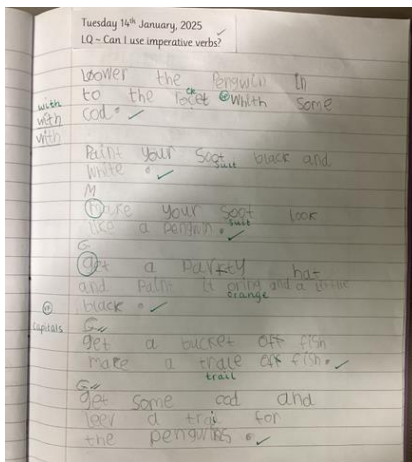 Tuesday 14th January, 2025
LQ ~ Can I use imperative verbs?
Loower the Penguin in
to the rocket Whith some
with
with
with
cod.
Paint your soot black and
suit
white.
M
make your soot look
suit
like a penguin.
G
get a parkty hat
and paint it oring and a little
orange
black.
capitals
G
get a bucket off fish
make a trale off fish.
trail
G
get some cod and
leev a trail for
the penguins.